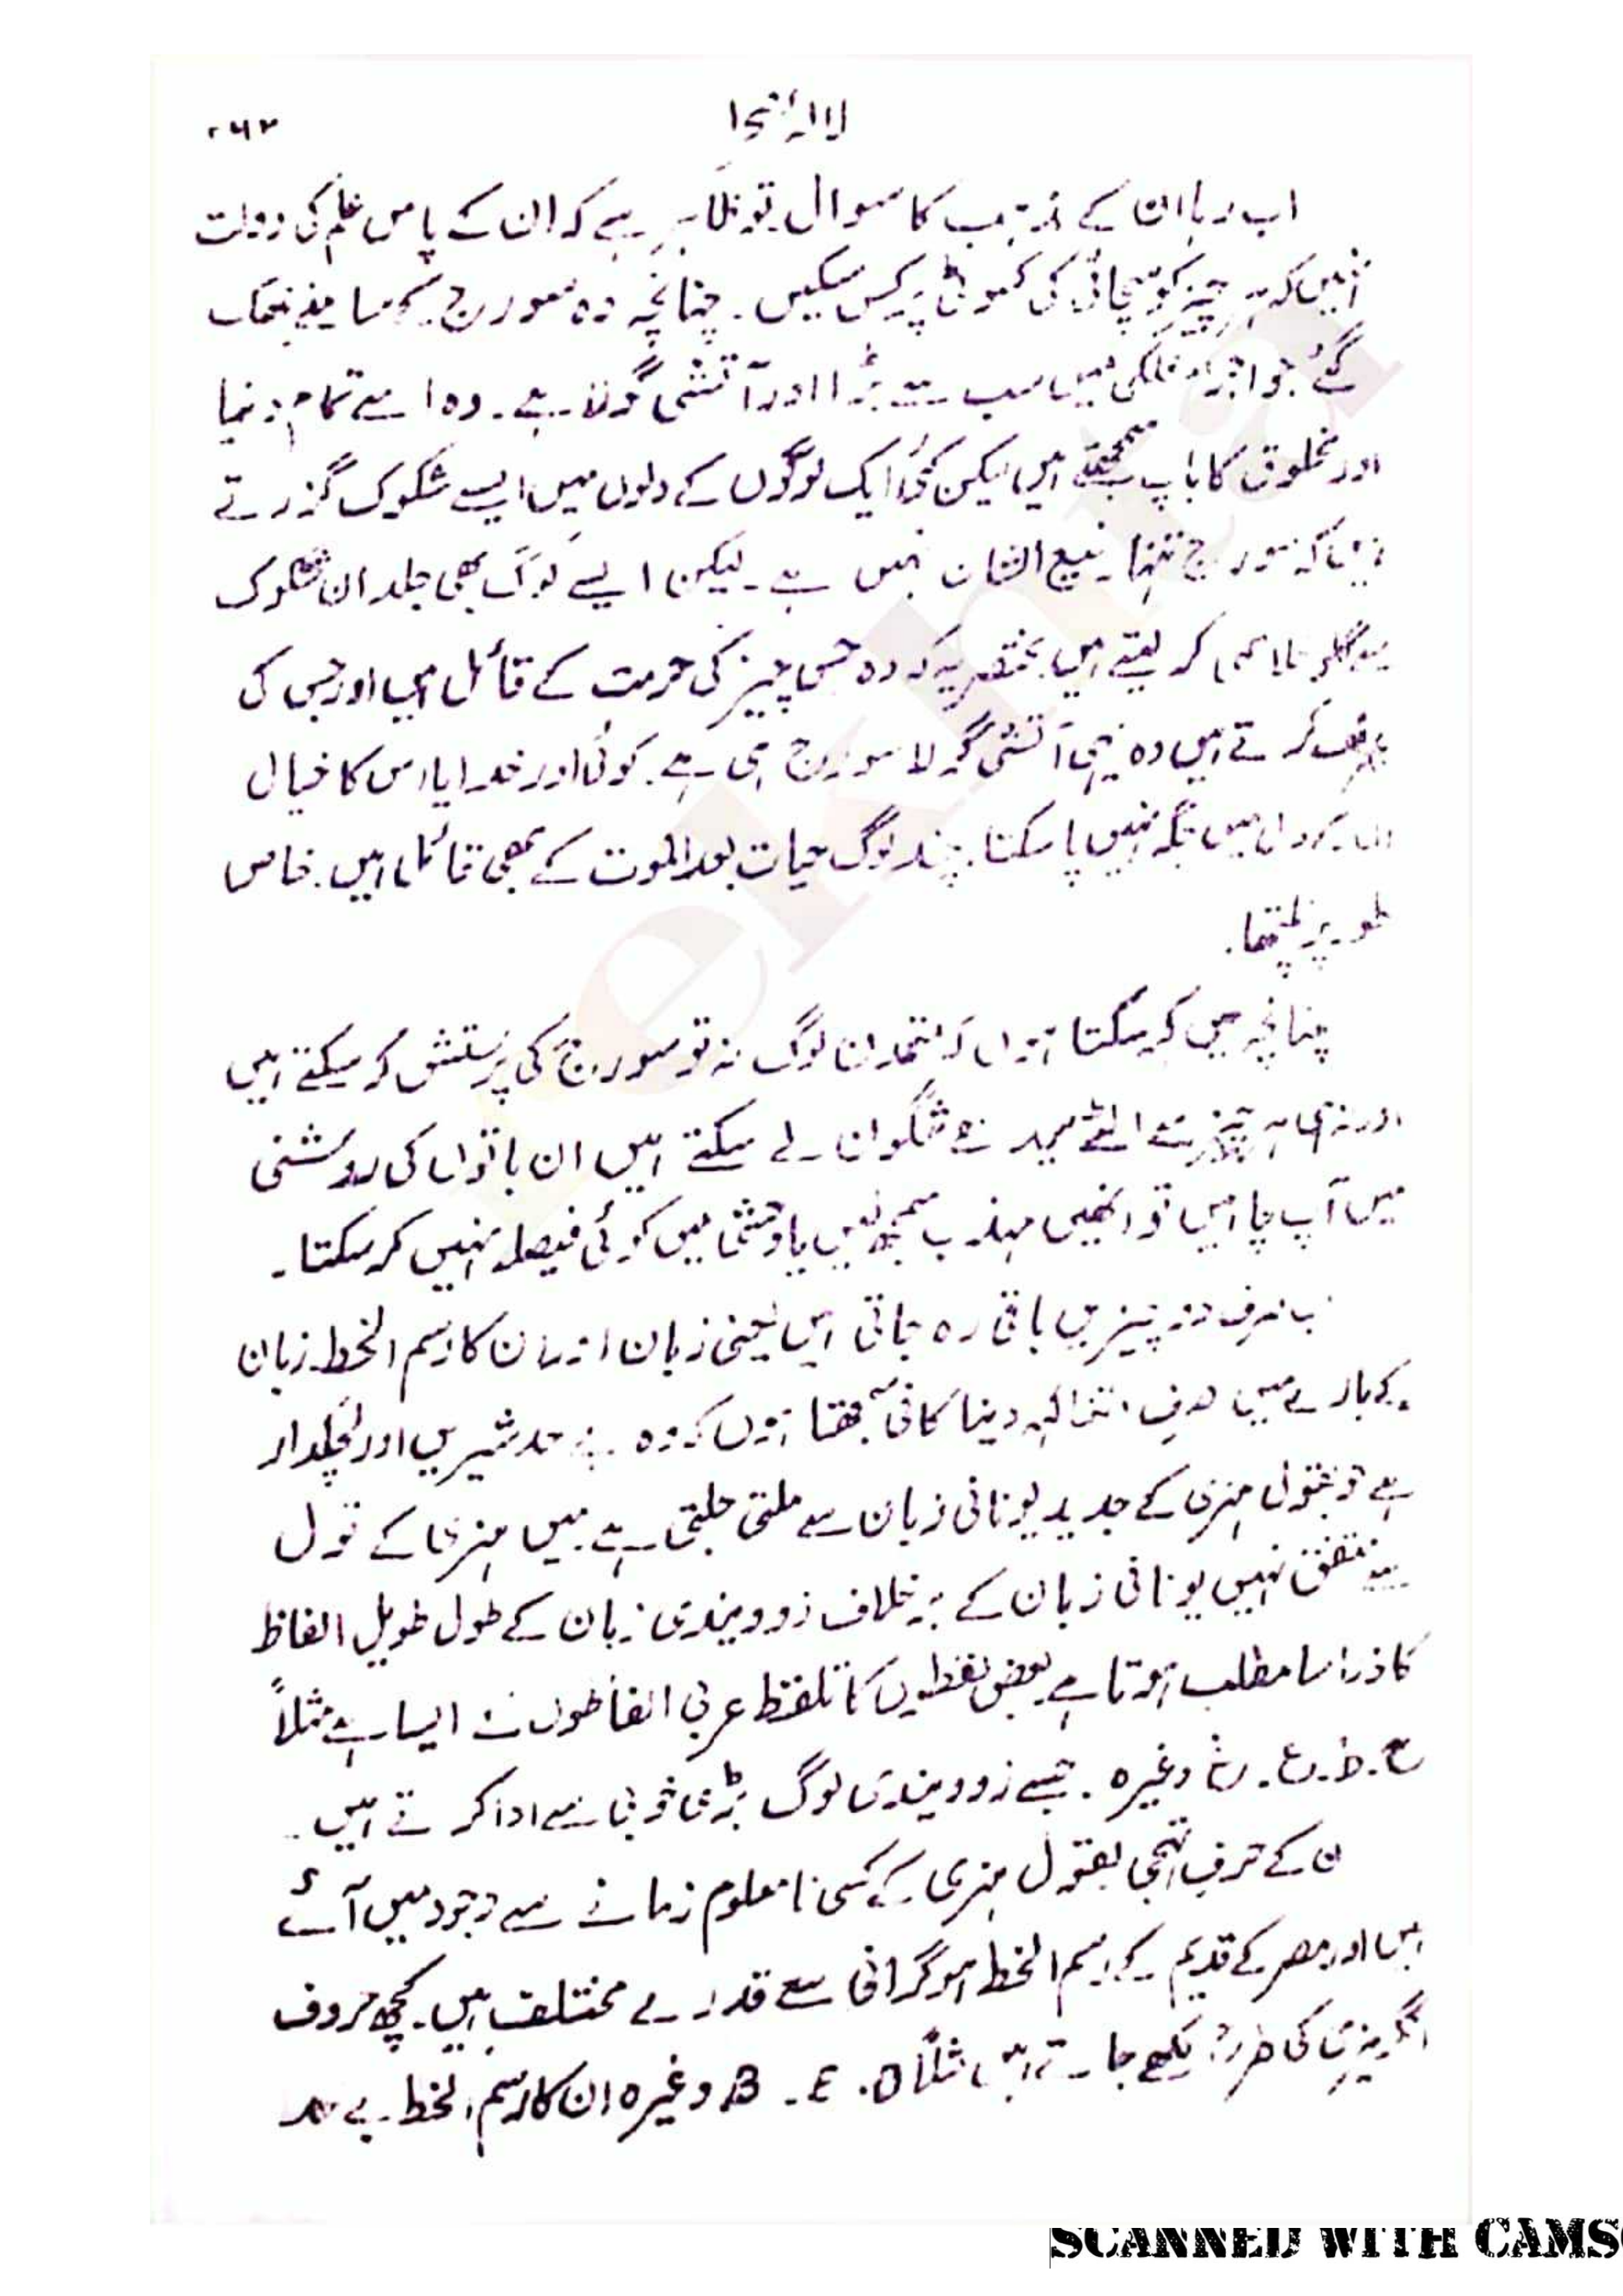 ۲۶۳
اب رہا ان کے مذہب کا سوال تو ظاہر ہے کہ ان کے پاس علم کی دولت
نہیں کہ ہر چیز کو سچائی کی کسوٹی پر کس سکیں۔ چنانچہ وہ سورج کے سامنے جھک
گئے جو اجرام فلکی میں سب سے بڑا اور آتشی گولا ہے۔ وہ اسے تمام دنیا
اور مخلوق کا باپ سمجھتے ہیں لیکن کئی ایک لوگوں کے دلوں میں ایسے شکوک گذرتے
ہیں کہ سورج تنہا رفیع الشان نہیں ہے۔ لیکن ایسے لوگ بھی جلد ان شکوک
کر لیتے ہیں۔ مختصر یہ کہ وہ جس چیز کی حرمت کے قائل ہیں اور جس کی
کرتے ہیں وہ یہی آتشی گولا سورج ہی ہے۔ کوئی اور خدا یا اس کا خیال
ان کے دل میں جگہ نہیں پا سکتا۔ چند لوگ حیات بعد الموت کے بھی قائل ہیں۔ خاص
طور پر نلیپتھا۔
چنانچہ میں کہہ سکتا ہوں کہ لوگ نہ تو سورج کی پرستش کر سکتے ہیں
اور نہ ہی ہر چیز سے الٹے سیدھے شگوان لے سکتے ہیں ان باتوں کی روشنی
میں آپ چاہیں تو انھیں مہذب سمجھ لیں یا وحشی میں کوئی فیصلہ نہیں کر سکتا۔
اب صرف دو چیزیں باقی رہ جاتی ہیں یعنی زبان اور ان کا رسم الخط۔ زبان
کے بارے میں صرف اتنا کہہ دینا کافی سمجھتا ہوں کہ وہ بے حد شیریں اور لچکدار
ہے تو بقول ہنری کے جدید یونانی زبان سے ملتی جلتی ہے۔ میں ہنری کے قول
سے متفق نہیں یونانی زبان کے برخلاف زوویندی زبان کے طول طویل الفاظ
کا ذرا سا مطلب ہوتا ہے بعض لفظوں کا تلفظ عربی الفاظوں ایسا ہے مثلاً
ح۔ ط۔ ع۔ غ وغیرہ۔ جسے زوویندی لوگ بڑی خوبی سے ادا کرتے ہیں۔
ان کے حرف تہجی بقول ہنری کے کسی نامعلوم زمانے سے وجود میں آئے
ہیں اور مصر کے قدیم کے رسم الخط ہوگرافی سے قدرے مختلف ہیں۔ کچھ حروف
انگریزی کی طرح لکھے جاتے ہیں مثلاً D۔ E۔ B وغیرہ ان کا رسم الخط بے حد
SCANNED WITH CAMS